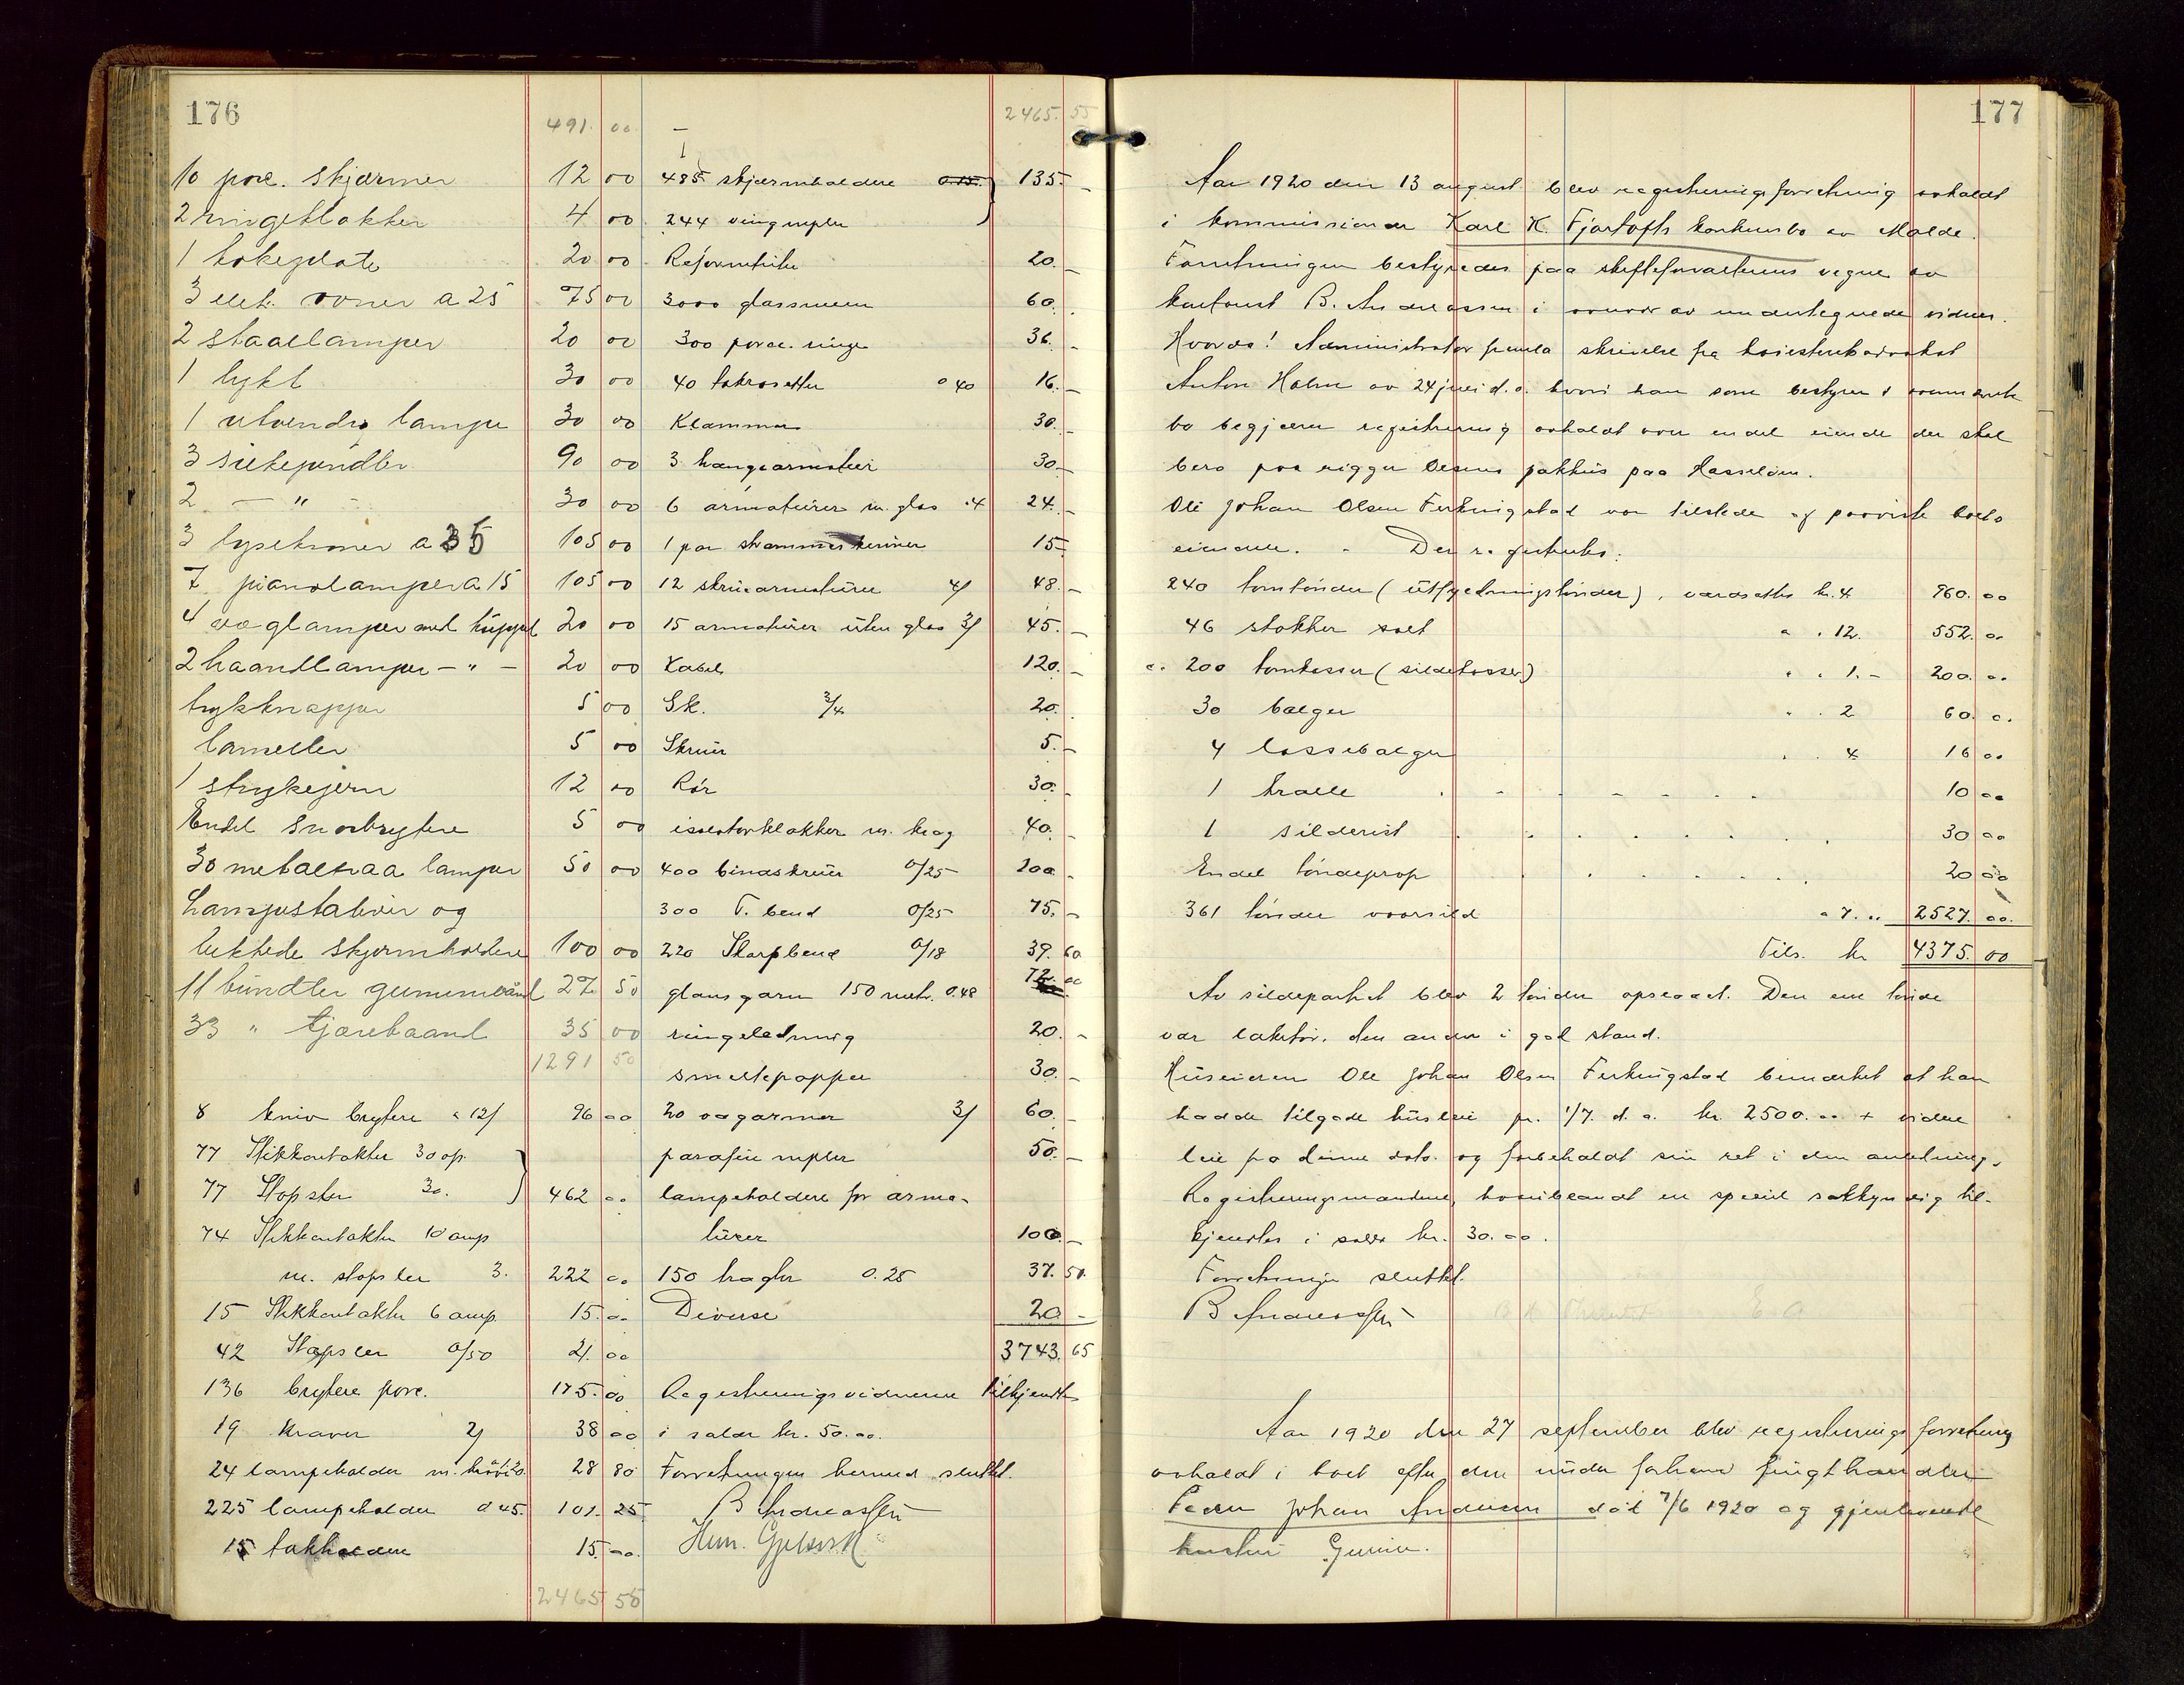 176
491. 00
10 porc. skjærmer 12 00
2 ringeklokker 4 00
1 kokeplate 20 00
3 elek. ovner a 25 75 00
2 staalamper 20 00
1 lykt 30 00
1 utvendig lampe 30 00
3 silkependler 90 00
2 - " - 30 00
3 lysekroner a 35 105 00
7 pianolamper a 15 105 00
4 vaglamper med kuppel 20 00
2 haandlamper - " - 20 00
trykknapper 5 00
lameller 5 00
1 strykejern 12 00
Endel snorbrytere 5 00
30 metaltraa lamper 50 00
Lampestativer og
lukkede skjermholdere 100 00
11 bundter gummibånd 27 50
33 " tjærebaand 35 00
1291 50
8 kniv brytere a 12/ 96 00
77 Stikkontakter 30 op.
77 Stopsler 30. } 462 00
74 Stikkontakter 10 amp
m. stopsler 3. 222 00
15 Stikkontakter 6 amp. 15. 00
42 Stopsler 0/50 21. 00
136 brytere porc. 175. 00
19 kraver 2/ 38 00
24 lampeholder m. 28 80
225 lampeholder 0 45. 101. 25
15 takholdere 15. 00.
2465 55
2465. 55
485 skjærmholdere 0.15. } 135. -
244 vingnipler
Reformtute 20. -
3000 glassmeen 60.
300 porce. ringe 36. -
40 takrosetter 0 40 16. -
Klammer 30. -
3 hangearmatur 30. -
6 armaturer m. glas 4 24. -
1 par strammeskruer 15. -
12 skruearmaturer 4/ 48. -
15 armaturer uten glas 3/ 45. -
Kabel 120. -
Sk. 3/4 20.
Skruer 5. -
Rör 30. -
isolatorklokker m. krog 40. -
400 bindskruer 0/25 100 -
300 T. bend 0/25 75. -
220 Skarpbend 0/18 39. 60
glansgarn 150 metr. 0.48 72. 00
ringeledning 20. -
smeltepropper 30. -
20 vagarmer 3/ 60. -
parafin nipler 50. -
lampeholdere for arma-
turer 100. -
150 tragter 0.25 37. 50.
Diverse 20 -
3743. 65
Registreringsvidnerne tilkjendtes
i salær kr. 50.00.
Forretningen hermed sluttet.
B Andreassen
177
Aar 1920 den 13 august blev registreringsforretning avholdt
i kommissionær Karl K. Fjørtofts konkursbo av Molde.
Forretningen bestyredes paa skifteforvalterens vegne av
kontorist B. Andreassen i nærvær av undertegnede vidner.
Hvorda! Administrator fremla skrivelse fra høiesteretsadvokat
Anton Holm av 24 juli d. a. hvori han som bestyrer i ovennævnte
bo begjærer registrering avholdt over endel eiende der skal
bero paa rigger Olsens pakhus paa Hasseløen.
Ole Johan Olsen Ferkingstad var tilstede og paaviste boets
eiendele. - Der registrertes:
240 tomtönder (utfyldningstönder), værdsattes kr. 4 960. 00
46 stokker salt " " 12. 552. 00
c. 200 tomkasser (sildekasser) " " 1. - 200. 00
30 balger " . 2 60. 00
4 lossebalger . . 4 16 00
1 tralle . - . - - - . . 10 00
1 silderist . . . . . . . 30 00
Endel töndeprop . . . . . . 20 00
361 tönder vaarsild " 7. " 2527. 00.
Tils. kr 4375. 00
Av sildepartiet blev 2 tönder opslaaet. Den ene tönde
var laketör. den anden i god stand.
Huseieren Ole Johan Olsen Ferkingstad bemærket at han
hadde tilgode husleie pr. 1/7. d. a. kr. 2500.00 + videre
leie fra denne dato. og forbeholdt sin ret i den anledning.
Registreringsmændene, hvoriblandt en speciel sakkyndig til-
kjendtes i salær kr. 30.00.
Forretningen sluttet.
B Andreassen
Aar 1920 den 27 september blev registreringsforretning
avholdt i boet efter den under forhenv
Peder Johan Andersen död 7/6 1920 og gjenlevende
hustru Gurine.